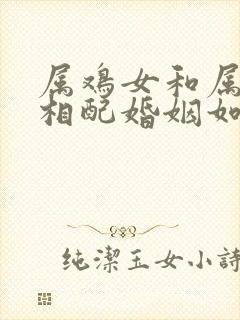 属鸡女和属
相配婚姻如
纯潔玉女小詩